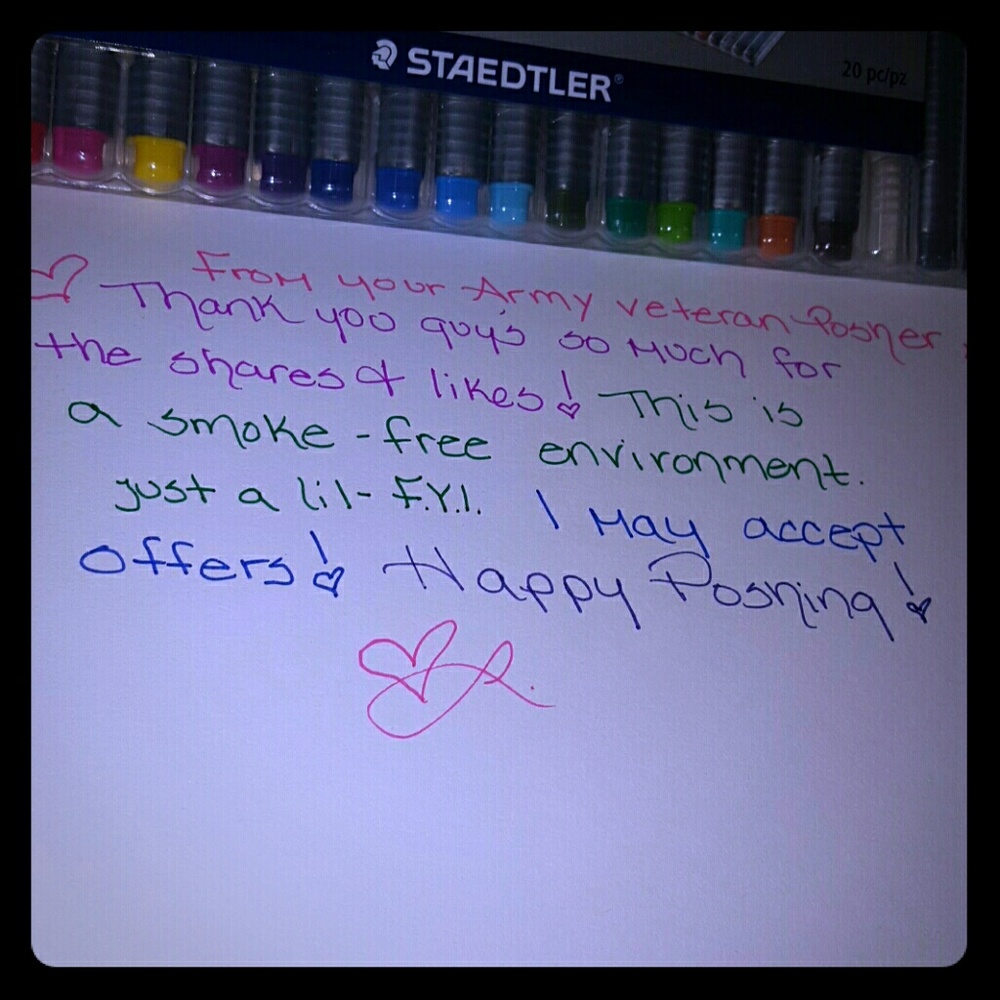 STAEDTLER®
20 pc/pz
From your Army veteran Posher
Thank you guys so much for
the shares & likes! This is
a smoke-free environment.
just a lil- F.Y.I. I may accept
offers! Happy Poshing!